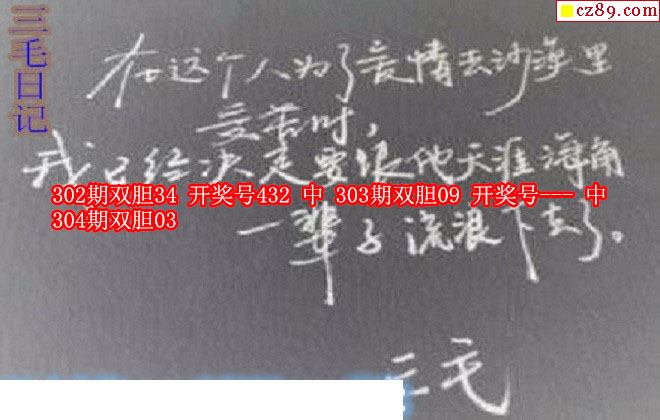 cz89.com
三毛日记
在这个人为了爱情去沙漠里
受苦时,
我已经决定要跟他天涯海角
302期双胆34 开奖号432 中 303期双胆09 开奖号--- 中
304期双胆03
一辈子流浪下去了。
三毛